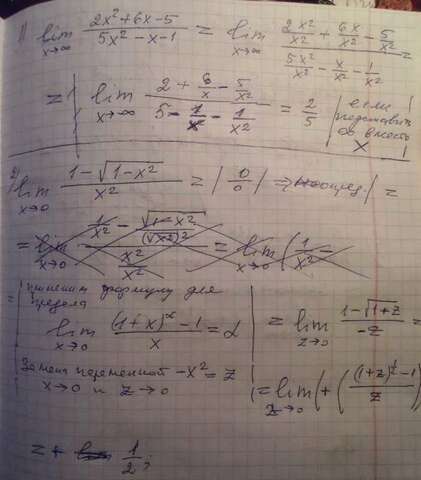 1) lim x→∞ (2x²+6x-5)/(5x²-x-1) = lim x→∞ (2x²/x² + 6x/x² - 5/x²)/(5x²/x² - x/x² - 1/x²) =
= | lim x→∞ (2 + 6/x - 5/x²)/(5 - 1/x - 1/x²) = 2/5 | если подставить ∞ вместо x |
2) lim x→0 (1-√(1-x²))/x² = | 0/0 | ⇒ неопред. | =
= lim x→0 (1/x² - √(1-x²)/(√x²)²)/(x²/x²) = lim x→0 (1/x² -
= | применим формулу для предела
lim x→0 ((1+x)^α - 1)/x = α | = lim z→0 (1-√(1+z))/-z =
Замена переменной -x² = z
x→0 и z→0 | = lim z→0 (+ (((1+z)^½ - 1)/z
= + 1/2;